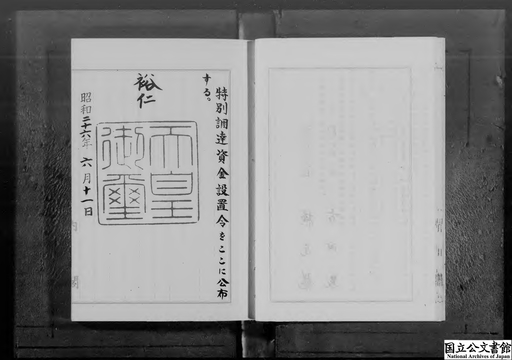 特別調達資金設置令をここに公布
する。
裕仁
天皇
御璽
昭和二十六年六月十一日
国立公文書館
National Archives of Japan